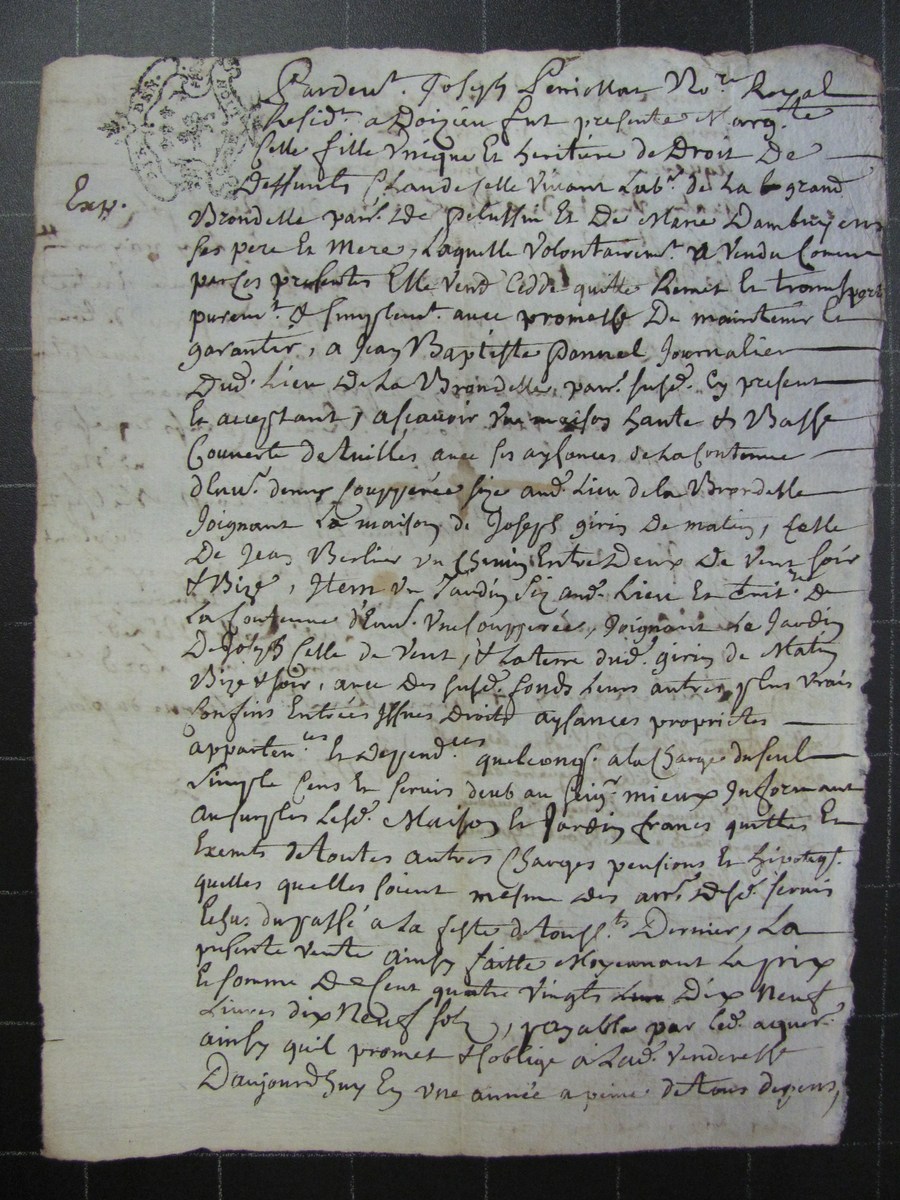 Pardev.t Joseph Peniollat No.re Royal
Resid.t a Doizieu fut presente Marg.te
Celle fille Unicque Et heritiere de Droit De
Deffunts Claude Celle Vivant Lab.r de La grand
Exp.
Brondelle par.se De Pelussin Et De Marie Dambuyens
ses pere Et Mere, Laquelle Volontairem.t a Vendu Comme
par ces presentes Elle Vend Cedde quitte Remet Et transport
purem.t & simplem.t avec promesse De maintenir Et
garantir, a Jean Baptiste Pannel Journalier
Dud. Lieu De La Brondelle, par.se susd. Cy present
Et acceptant, a scavoir Une maison haute & Basse
Couverte de tuilles avec ses aysances de La Contenue
d'Env.n deux coupperées size aud. Lieu de la Brondelle
Joignant La maison de Joseph girin De matin, Celle
De Jean Berlier un Chemin Entre Deux De Vent soir
& Bize, Item Un Jardin sis aud. Lieu Et territ.re De
La Contenue d'Env.n Une Coupperée, Joignant Le Jardin
De Joseph Celle de Vent, & La terre dud. girin de Matin
Bize & soir, avec Des susd. fonds Leurs autres plus vrais
Confins Entrées Issues Droits aysances proprietes
apparten.ces Et Deppend.ces quelconq. a la Charge du seul
simple Cens Et servis deub au seig.r mieux Informant
au surplus Lesd. Maison Et Jardin francs quittes Et
Exempts de toutes autres Charges pensions Et hipoteq.
quelles quelles soient mesme des arr. Desd. servis
Echus du passé a La feste de touss.ts Dernier, La
presente vente ainsy faitte Moyennant Le prix
Et somme De Cent quatre vingts Dix Neuf
Livres dix Neuf sols, payable par led. aquer.
ainsy quil promet & soblige a Lad. Venderesse
D'aujourdhuy En une année a peine de tous depens,